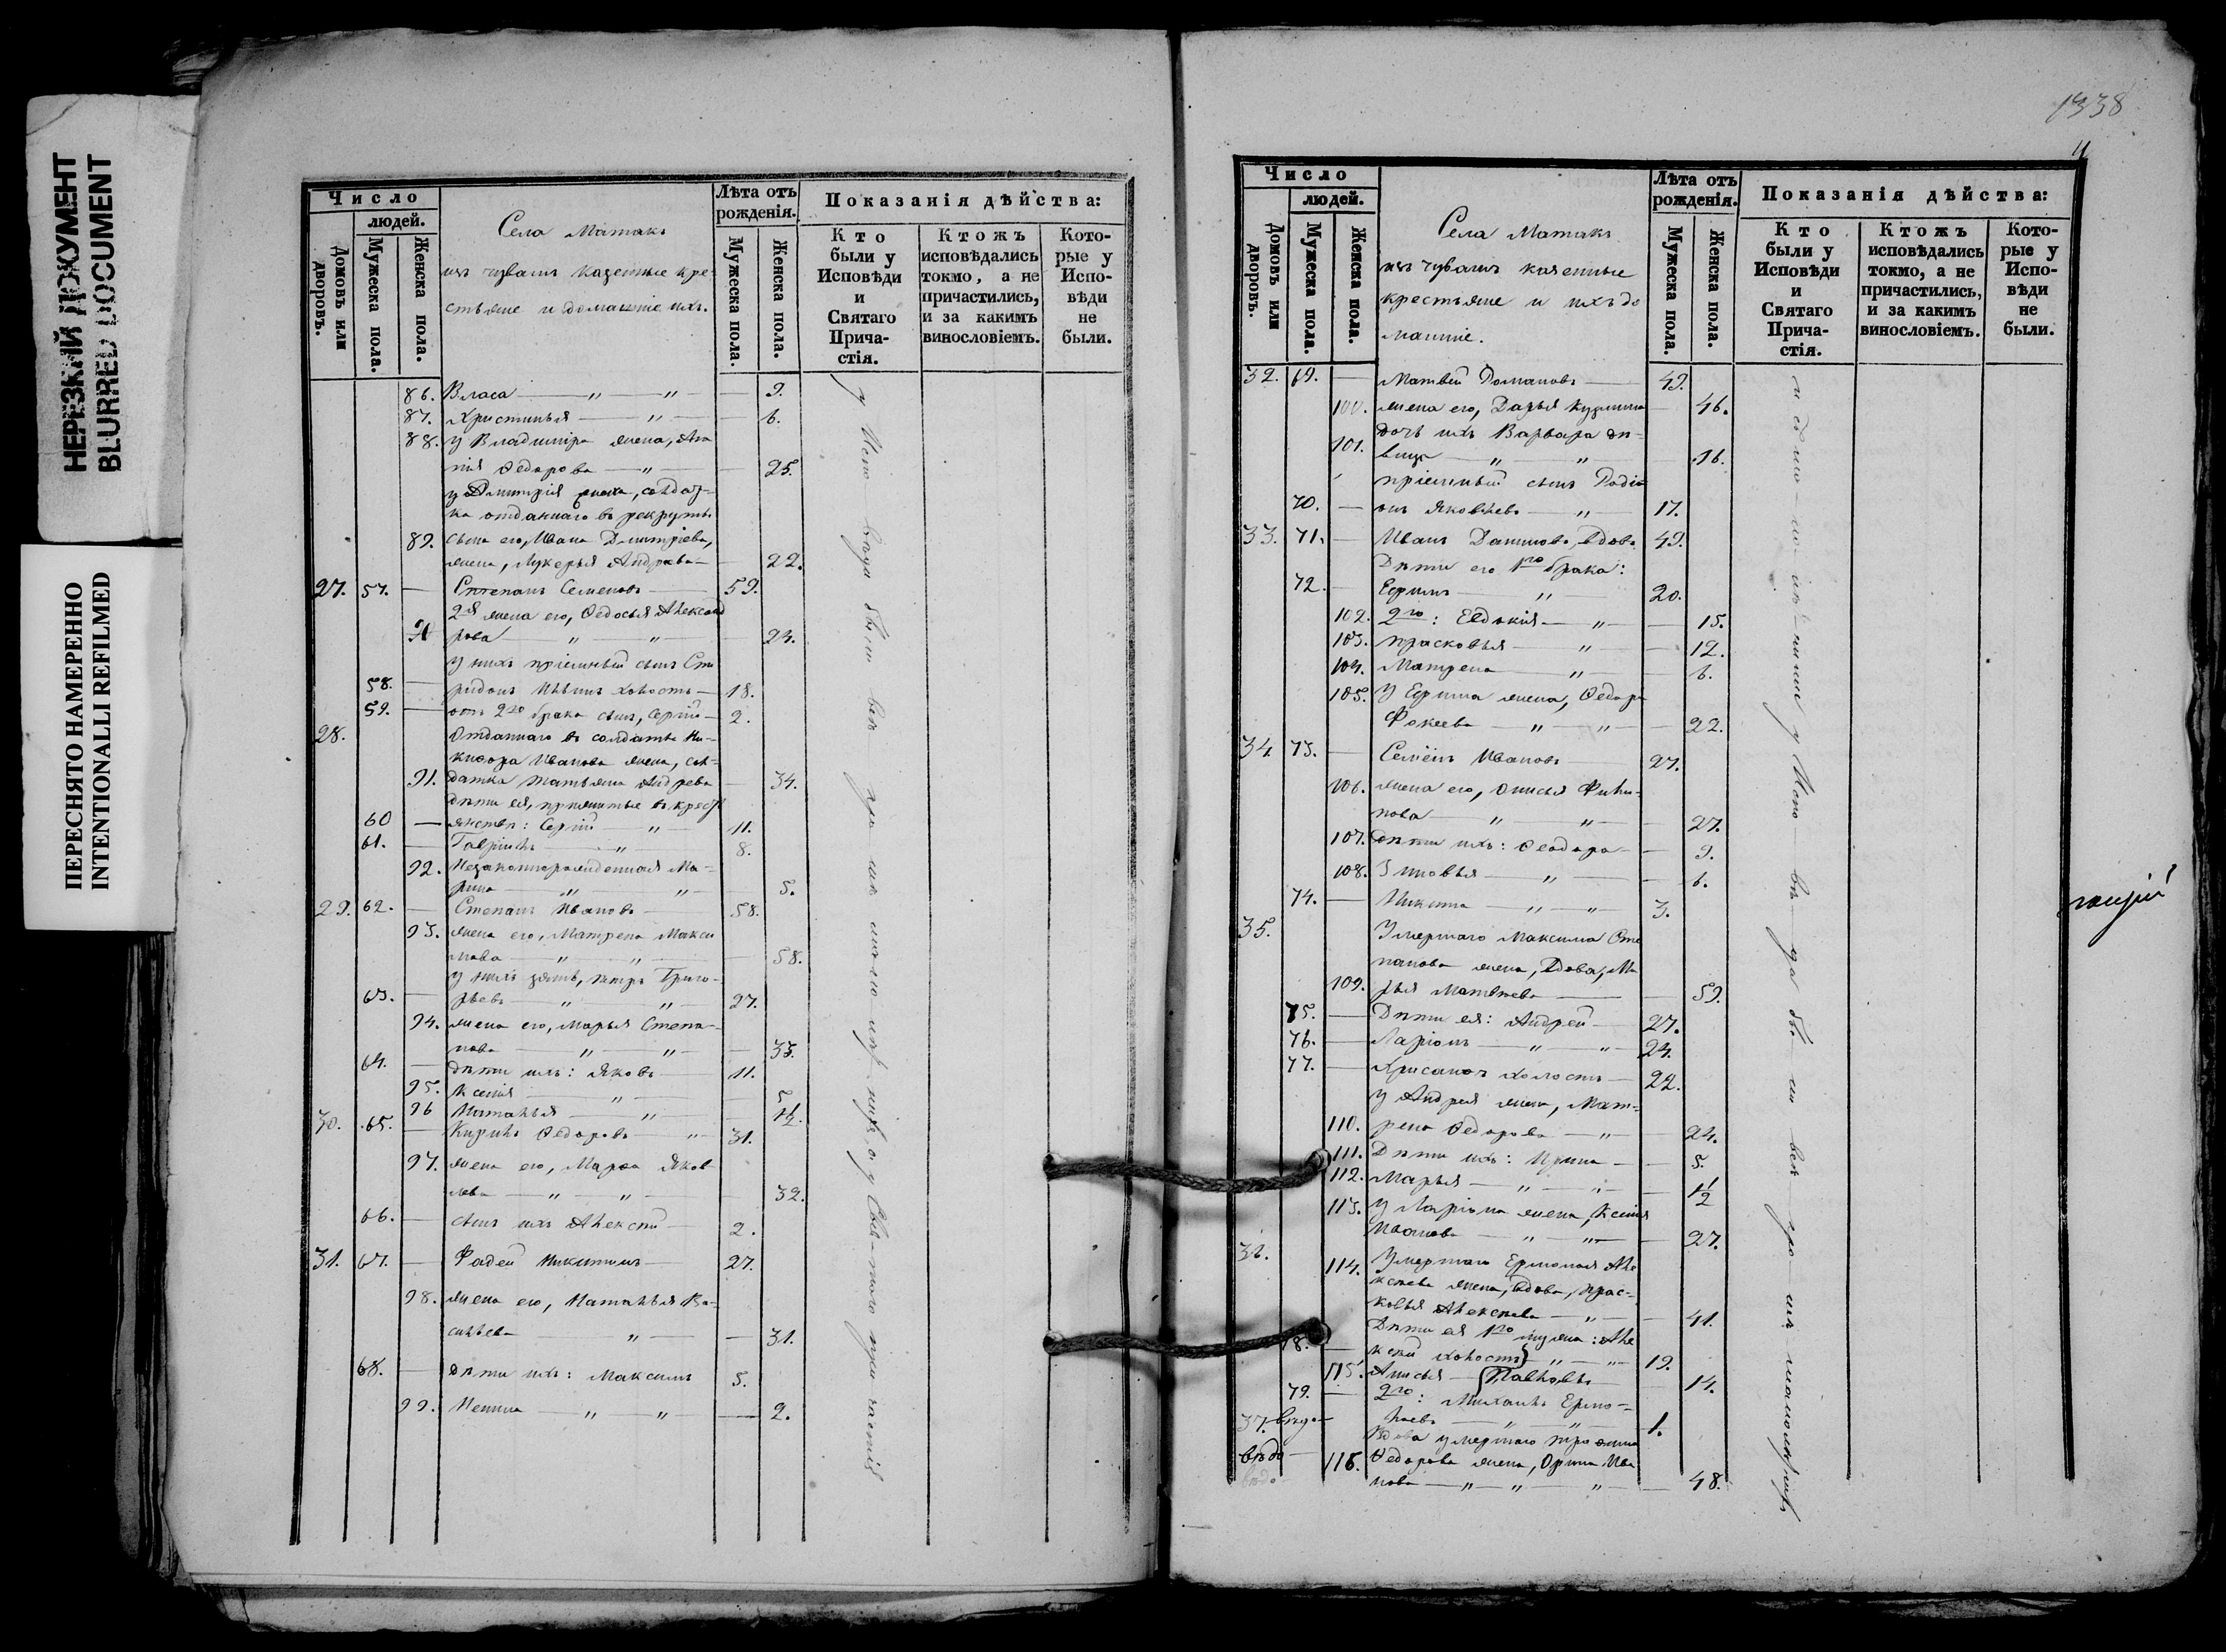 НЕРЕЗКИЙ ДОКУМЕНТ
BLURRED DOCUMENT
ПЕРЕСНЯТО НАМЕРЕННО
INTENTIONALLI REFILMED
Число
людей.
Домовъ или дворовъ.
Мужеска пола.
Женска пола.
Села Матакъ
изъ чувашъ казенные кре-
стьяне и домашніе ихъ.
Лѣта отъ рожденія.
Мужеска пола.
Женска пола.
Показанія дѣйства:
Кто были у Исповѣди и Святаго Прича-стія.
Ктожъ исповѣдались токмо, а не причастились, и за какимъ винословіемъ.
Кото-рые у Испо-вѣди не были.
86. Власа — „ — „ — 9.
87. Христинья — „ — 6.
88. у Владиміра жена,
Ѳедорова — „ — 25.
у Димитрія
ка отданнаго въ рекруты
89. сына его, Ивана Димитріева,
жена, Лукерья Андреева — 22.
27. 57. — Степанъ Семеновъ — 59.
2я жена его, Ѳедосья Александ
рова — „ — „ — 24.
у нихъ пріемный сынъ Спи
58. — ридонъ холостъ — 18.
59. — отъ 2го брака сынъ, Сергій — 2.
28. Отданнаго въ солдаты Ни-
кифора Иванова жена, сол-
91. датка Татьяна Андреева — 34.
дѣти ея, прижитые въ крест
60 — янствѣ: Сергій — „ — 11.
61. — Гавріилъ — „ 8.
92. Незаконнорожденная Ма-
рина — „ — „ — 5.
29. 62. — Степанъ Ивановъ — 58.
93. жена его, Матрена Макси
мова — „ — „ — 58.
у нихъ зять, Петръ Григо-
63. — рьевъ — „ — „ — 27.
94. жена его, Марья Степа-
нова — „ — „ — 33.
64. — дѣти ихъ: Яковъ — 11.
95. Ксенія — „ — 5
96 Наталья — „ — 1/2.
30. 65. — Кирилъ Ѳедоровъ — „ — 31.
97. жена его, Марѳа Яков
лева — „ — „ — 32.
66. — сынъ ихъ Алексѣй — 2.
31. 67. — Фадей Никитинъ — 27.
98. жена его, Наталья Ва-
сильева — „ — 31.
68. — дѣти ихъ: Максимъ 5.
99. Ненила — „ — „ — 2.
1338
Число
людей.
Домовъ или дворовъ.
Мужеска пола.
Женска пола.
Села Матакъ
изъ чувашъ казенные
крестьяне и ихъ до
машніе.
Лѣта отъ рожденія.
Мужеска пола.
Женска пола.
Показанія дѣйства:
Кто были у Исповѣди и Святаго Прича-стія.
Ктожъ исповѣдались токмо, а не причастились, и за какимъ винословіемъ.
Кото-рые у Испо-вѣди не были.
32. 69. — Матвей Романовъ — 49.
100. жена его, Дарья Кузмина — 46.
дочь ихъ Варвара дѣ-
101. вица — „ — „ 16.
пріемный сынъ Родіо
70. — нъ Яковлевъ — „ — 17.
33. 71. — Иванъ Даниловъ, вдовъ 49.
Дѣти его 1го брака:
72. — Ефимъ — „ — 20.
102. 2го: Евдокія — „ — 15.
103. Прасковья — „ — 12.
104. Матрена — „ — 6.
105. У Ефима жена, Ѳедора
Фокеева — „ — „ — 22.
34 73. — Семенъ Ивановъ — 27.
106. жена его, Анисья Фили-
пова — „ — „ — 27.
107. дѣти ихъ: Ѳеодора — 9.
108. Зиновья — „ — 6.
74. — Никита — „ — „ — 3.
35. Умершаго Максима Сте
панова жена, вдова, Ма
109. рья Матвѣева — 59.
75. — Дѣти ея: Андрей — 27.
76. — Ларіонъ — „ — „ — 24.
77. — Хрисанфъ холостъ — 22.
у Андрея жена, Мат-
110. рена Ѳедорова — „ — 24.
111. Дѣти ихъ: Ирина — 5.
112. Марья — „ — „ — 1/2
113. У Ларіона жена, Ксенія
Иванова — „ — „ — 27.
36. 114. Умершаго Ермолая Але
ксѣева жена, вдова, Прас-
ковья Алексѣева — „ — 41.
Дѣти ея 1го мужа: Але
78. — ксѣй холостъ} „ — „ — 19.
115. Анисья — {Павловы 14.
79. — 2го: Михаилъ Ермо-
лаевъ — „ — „ — 1.
37. Вдова умершаго Трофима
116. Ѳедорова жена, Орина Ива
нова — „ — „ — „ — 48.